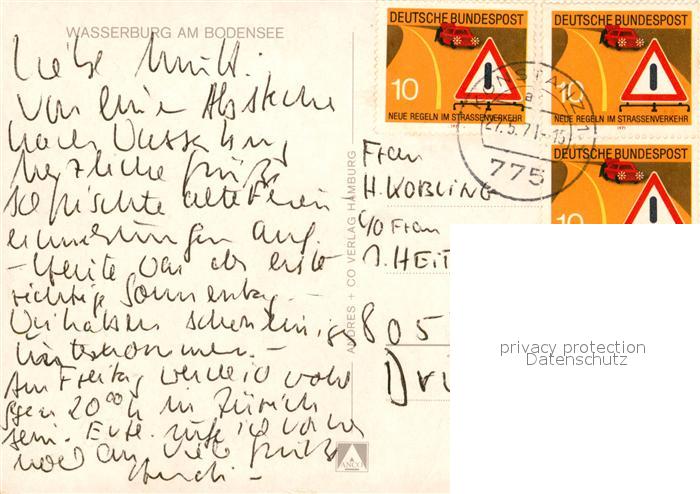 WASSERBURG AM BODENSEE
Liebe Mutti.
Von einem Abstecher
nach Wasserburg
herzliche Grüße
So frischte alte Ferien
erinnerungen auf.
- Heute war der erste
richtige Sonnentag -
Wir haben schon einiges
-
Am Freitag werde ich wohl
gegen 20 00 h in Zürich
sein. Evtl. rufe ich vorher
noch an. Viele Grüße
ANDRES + CO VERLAG HAMBURG
ANCO
DEUTSCHE BUNDESPOST
10
NEUE REGELN IM STRASSENVERKEHR
1971
DEUTSCHE BUNDESPOST
10
NEUE REGELN IM STRASSENVERKEHR
1971
DEUTSCHE BUNDESPOST
10
KONSTANZ 1
a
27.5.71-15
775
Frau
H. KOBLING
c/o Frau
J. HEIT
805
privacy protection
Datenschutz